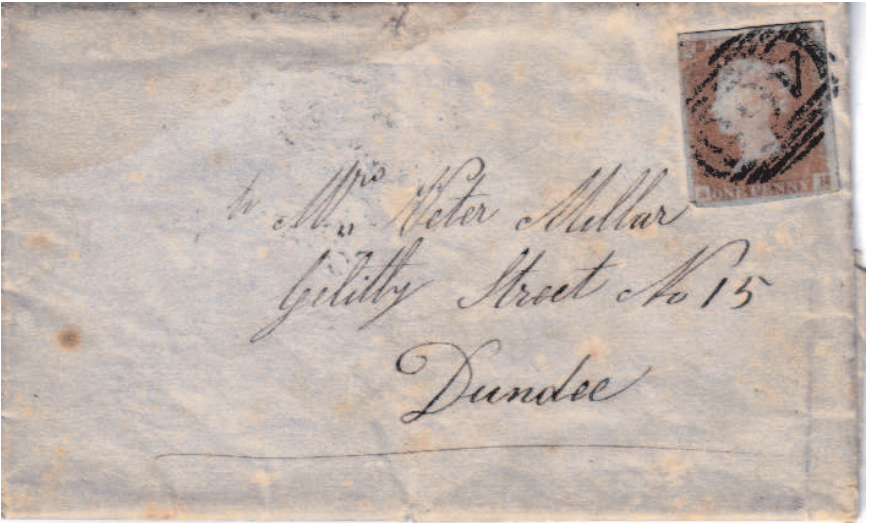 ONE PENNY
Mrs Peter Millar
Gelitly Street No 15
Dundee